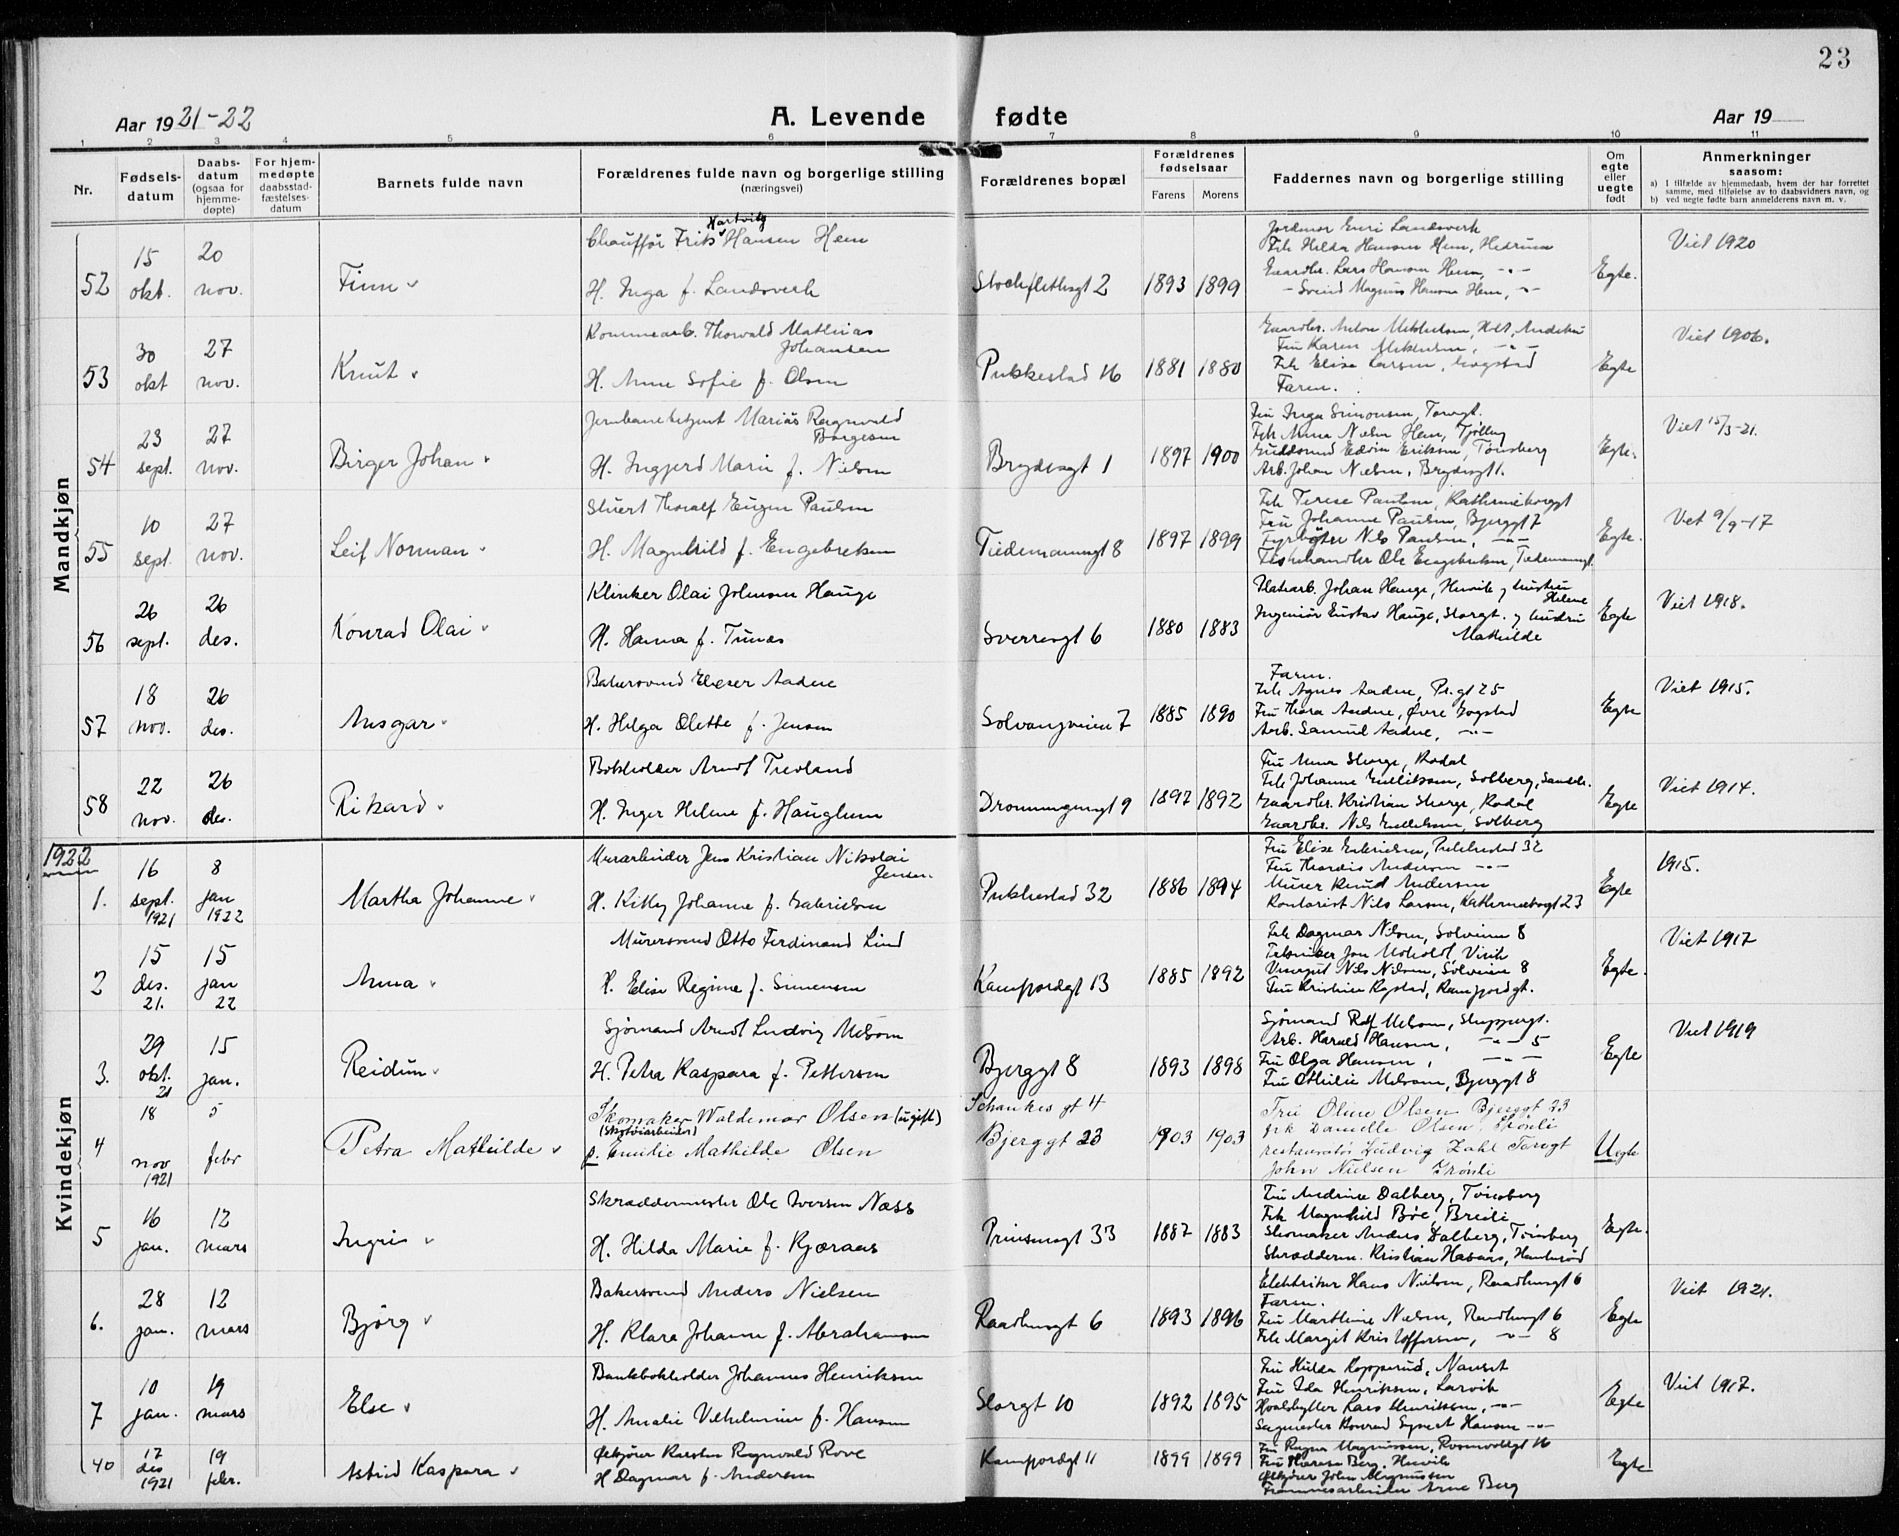 23
Aar 1921-22
A. Levende fødte
Aar 19
1 2 3 4 5 6 7 8 9 10 11
Nr.
Fødsels-datum
Daabs-datum (ogsaa for hjemme-døpte)
For hjem-medøpte daabsstad-fæstelses-datum
Barnets fulde navn
Forældrenes fulde navn og borgerlige stilling (næringsvei)
Forældrenes bopæl
Forældrenes fødselsaar
Farens
Morens
Faddernes navn og borgerlige stilling
Om egte eller uegte født
Anmerkninger saasom:
a) I tilfælde av hjemmedaab, hvem der har forrettet samme, med tilføielse av to daabsvidners navn, og
b) ved uegte fødte barn anmelderens navn m. v.
Mandkjøn
52 15 okt. 20 nov. Finn
Chauffør Frits Hartvig Hansen Hem
H. Inga f. Landsverk
Stockflethsgt 2 1893 1899
Jordmor Guri Landsverk
Frk Hilda Hansen Hem, Hedrum
Gaardbr. Lars Hansen Hem, -"-
- Svend Magnus Hansen Hem, -"-
Egte. Viet 1920
53 30 okt 27 nov. Knut
Kommunearb. Thorvald Mathias Johansen
H. Anne Sofie f. Olsen
Pukkestad 16 1881 1880
Gaardbr. Anton Mikkelsen, Holt, Andebu
Fru Karen Mikkelsen, -"-
Frk Elise Larsen, Gogstad
Faren.
Egte Viet 1906.
54 23 sept. 27 nov. Birger Johan
Jernbanebetjent Marius Ragnvald Borgesen
H. Ingjerd Marie f. Nilsen
Brydesgt 1 1897 1900
Fru Inga Simonsen, Torvgt.
Frk Anna Nilsen Hem, Tjølling
Guldsmed Edvin Eriksen, Tønsberg
Arb. Johan Nilsen, Brydesgt 1.
Egte. Viet 15/3-21.
55 10 sept. 27 nov. Leif Norman
Stuert Thoralf Eugen Paulsen
H. Magnhild f. Engebretsen
Tiedemannsgt 8 1897 1899
Frk Terese Paulsen, Kathrineborggt
Fru Johanne Paulsen, Bjerggt 7
Fyrbøter Nils Paulsen, -"-
Fiskehandler Ole Engebretsen, Tiedemannsgt.
Egte. Viet 9/9-17
56 26 sept. 26 des. Konrad Olai
Klinker Olai Johnsen Hauge
H. Hanna f. Tunas
Sverresgt 6 1880 1883
Platearb. Johan Hauge, Huvik og hustru Helene
Ingeniør Gustav Hauge, Storgt. og hustru Mathilde
Egte Viet 1918.
57 18 nov. 26 des. Ansgar
Bakersvend Elieser Aadne
H. Helga Olette f. Jensen
Solvangveien 7 1885 1890
Faren.
Frk Agnes Aadne, Pr.gt 25
Fru Thora Aadne, Øvre Gogstad
Arb. Samuel Aadne, -"-
Egte Viet 1915.
58 22 nov. 26 des. Rikard
Bokholder Arndt Trevland
H. Inger Helene f. Haughem
Dronningensgt 9 1897 1892
Fru Anna Skorge, Kodal
Frk Johanne Gulliksen, Solberg, Sandeh.
Gaardbr. Kristian Skorge, Kodal
Gaardbr. Nils Gulliksen, Solberg
Egte Viet 1914.
1922
Kvindekjøn
1. 16 sept. 1921 8 jan 1922 Martha Johanne
Murarbeider Jens Kristian Nikolai Jensen.
H. Kitty Johanne f. Gabrielsen
Pukkestad 32 1886 1894
Fru Elise Gabrielsen, Pukkestad 32
Fru Thordis Andersen -"-
Murer Knud Andersen
Kontorist Nils Larsen, Kathrineborggt 23
Egte 1915.
2 15 des. 21. 15 jan 22 Anna
Murersvend Otto Ferdinand Lind
H. Elise Regine f. Simensen
Kamfjordgt 13 1885 1892
Frk Dagmar Nilsen, Solveien 8
Jon Moholdt, Virik
Nils Nilsen, Solveien 8
Fru Kristine Rystad, Kamfjordgt.
Egte. Viet 1917
3. 29 okt. 21 15 jan. Reidun
Sjømand Arndt Ludvig Melsom
H. Petra Kaspara f. Pettersen
Bjerggt 8 1893 1898
Sjømand Rolf Melsom, Skippergt.
Arb. Harald Hansen, -"- 5
Fru Olga Hansen, -"-
Fru Othilie Melsom, Bjerggt 8
Egte Viet 1919
4 18 nov 1921 5 febr Petra Mathilde
Skomaker Waldemar Olsen (ugift)
(Skotøiarbeider)
p. Emilie Mathilde Olsen
Schankes gt 4
Bjerggt 23 1903 1903
Fru Oline Olsen Bjerggt 23
frk Danielle Olsen, Grønli
restauratør Ludvig Dahl Torvgt
John Nielsen Grønli
Uegte
5 16 jan. 12 mars Ingris
Skræddermester Ole Iversen Næss
H. Hilda Marie f. Kjæraas
Prinsensgt 33 1887 1883
Fru Andrine Dalberg, Tønsberg
Frk Magnhild Bøe, Breili
Skomaker Anders Dalberg, Tønsberg
Skrædderm. Kristian Haraas, Haukerød
Egte.
6. 28 jan. 12 mars Bjørg
Bakersvend Anders Nielsen
H. Klara Johanne f. Abrahamsen
Raadhusgt 6 1893 1896
Elektriker Hans Nielsen, Raadhusgt 6
Faren.
Fru Marthine Nielsen, Raadhusgt 6
Frk Margit Kristoffersen, -"- 8
Egte Viet 1921.
7 10 jan. 19 mars Else
Bankbokholder Johannes Henriksen
H. Amalie Vilhelmine f. Hansen
Storgt 10 1892 1895
Fru Hulda Kopperud, Nanset
Fru Ida Henriksen, Larvik
Hvalskytter Lars Henriksen, -"-
Sagmester Konrad Hansen -"-
Egte Viet 1917.
40 17 des 1921 19 febr. Astrid Kaspara
Ølkjører Karsten Ragnvald Rove
H Dagmar f. Andersen
Kamfjordgt 11 1899 1899
Fru Ragna Magnussen, Rosenvoldgt 16
Fru Therese Berg, Huvik
Ølkjører John Magnussen
Arne Berg
Egte